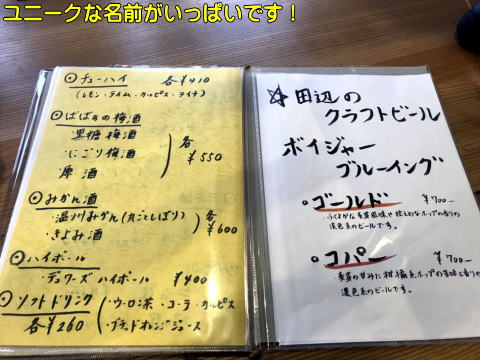 ユニークな名前がいっぱいです！
チューハイ 各¥410
(レモン・ライム・カルピス・ライチ)
ばばぁの梅酒
黒糖梅酒
・にごり梅酒
原酒
各¥550
みかん酒
・温州みかん(丸ごとしぼり)
・きよみ酒
各¥600
ハイボール
・デュワーズハイボール ¥400
ソフトドリンク
各¥260
・ウーロン茶・コーラ・カルピス
・ブラッドオレンジジュース
☆田辺の
クラフトビール
ボイジャー
ブルーイング
・ゴールド ¥700-
淡色系のビールです。
・コパー ¥700-
麦芽の甘みに柑橘系ホップの苦味と香りの
濃色系のビールです。